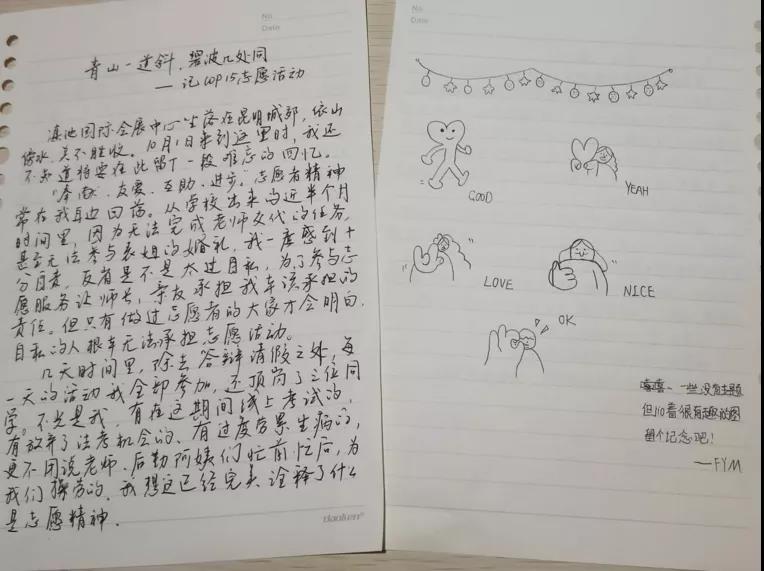 No.
Date
青山一道斜，碧波几处同
——记COP15志愿活动
滇池国际会展中心坐落在昆明城郊，依山
傍水，美不胜收。10月1日来到这里时，我还
不知道将要在此留下一段难忘的回忆。
"奉献、友爱、互助、进步。"志愿者精神
常在我耳边回荡。从学校出来的近半个月
时间里，因为无法完成老师交代的任务，
甚至无法参与表姐的婚礼，我一度感到十
分自责，反省是不是太过自私，为了参与志
愿服务让师长、亲友承担我本该承担的
责任。但只有做过志愿者的大家才会明白，
自私的人根本无法承担志愿活动。
几天时间里，除去答辩请假之外，每
一天的活动我全部参加，还顶岗了三位同
学。不光是我，有在这期间线上考试的，
有放弃了法考机会的，有过度劳累生病的，
更不用说老师、后勤阿姨们忙前忙后，为
我们操劳的，我想这已经完美诠释了什么
是志愿精神.
daolen
No.
Date
GOOD
YEAH
LOVE
NICE
OK
嘻嘻~一些没有主题
但110看很有趣的图
留个纪念吧！
——FYM